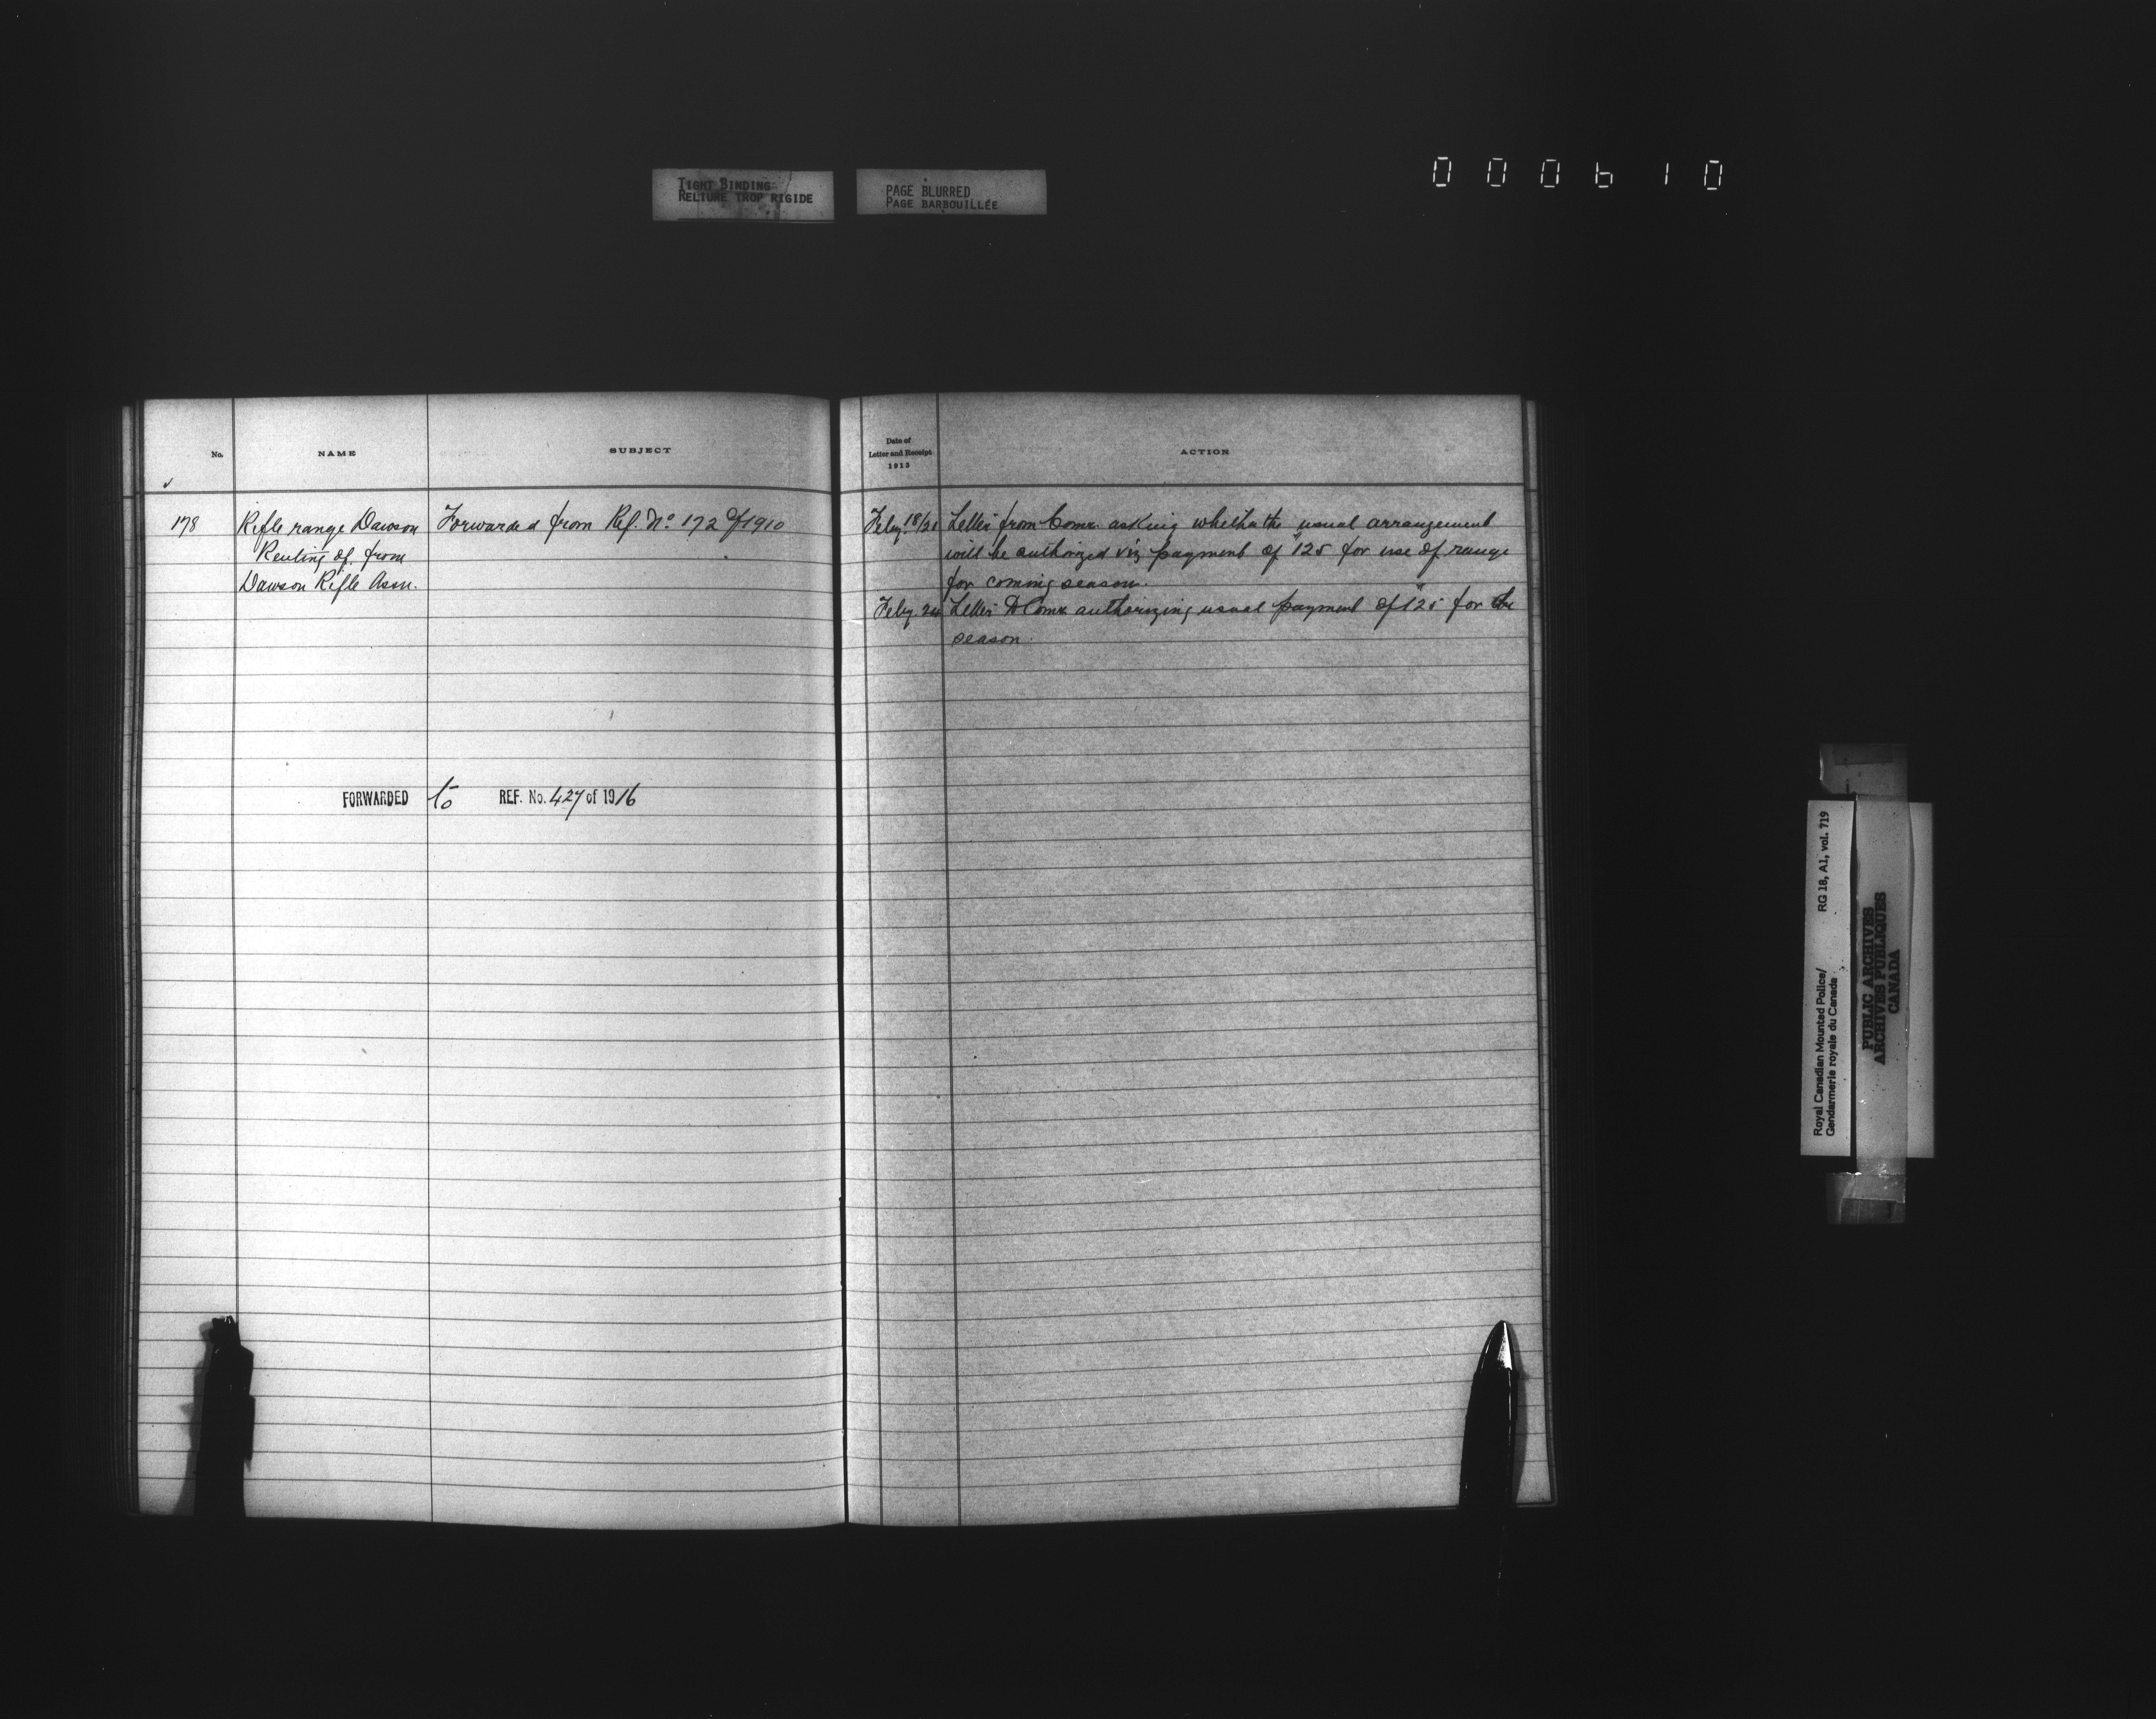 TIGHT BINDING
RELIURE TROP RIGIDE
PAGE BLURRED
PAGE BARBOUILLÉE
000610
No.
NAME
SUBJECT
178
Rifle range Dawson
Renting of from
Dawson Rifle Assn.
Forwarded from Ref. No 172 of 1910
FORWARDED to REF. No. 427 of 1916
Date of
Letter and Receipt
1913
ACTION
Feby. 18/21 Letter from Comr. asking whether the usual arrangement
will be authorized viz payment of $125 for use of range
for coming season.
Feby. 24 Letter to Comr. authorizing usual payment of $125 for the
season.
Royal Canadian Mounted Police/ RG 18, A1, vol. 719
Gendarmerie royale du Canada
PUBLIC ARCHIVES
ARCHIVES PUBLIQUES
CANADA